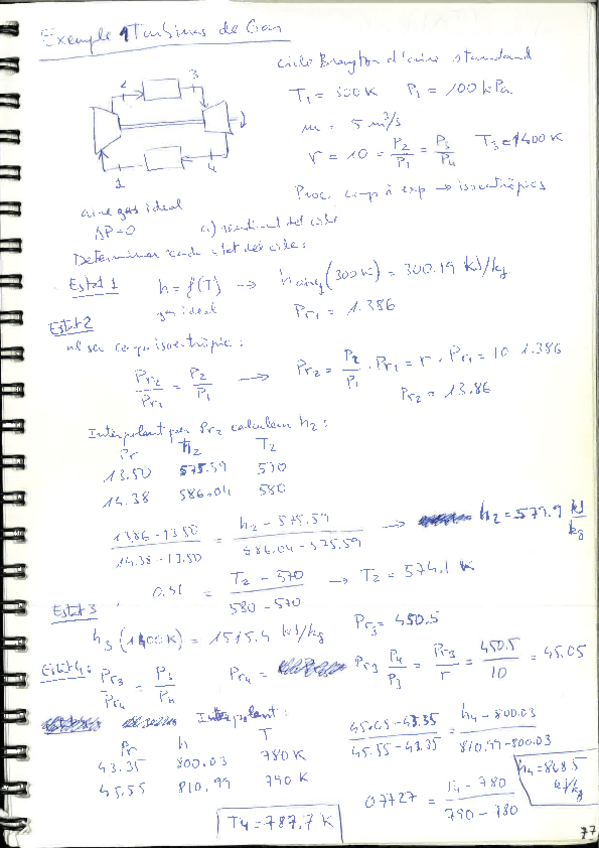 Exemple 1 Turbines de Gas
cicle Brayton d'aire standard
T1 = 300 K P1 = 100 kPa
m = 5 m³/s
r = 10 = P2/P1 = P3/P4 T3 = 1400 K
2 3
1 4
Proc. comp i exp → isoentròpics
aire gas ideal
ΔP=0 a) rendiment del cicle
Determinar cada estat del cicle:
Estat 1 h = f(T) → h aire (300 K) = 300.19 kJ/kg
gas ideal Pr1 = 1.386
Estat 2
al ser isoentròpic:
Pr2/Pr1 = P2/P1 → Pr2 = P2/P1 · Pr1 = r · Pr1 = 10 1.386
Pr2 = 13.86
Interpolant per Pr2 calculem h2:
Pr h2 T2
13.50 575.59 570
14.38 586.04 580
(1386-13.50)/(14.38-13.50) = (h2 - 575.59)/(586.04-575.59) → h2 = 579.9 kJ/kg
0.41 = (T2 - 570)/(580-570) → T2 = 574.1 K
Estat 3
h3 (1400K) = 1515.4 kJ/kg Pr3 = 450.5
Estat 4: Pr3/Pr4 = P3/P4 Pr4 = Pr3 P4/P3 = Pr3/r = 450.5/10 = 45.05
Interpolant:
Pr h T
43.35 800.03 780 K
45.55 810.99 790 K
(45.05-43.35)/(45.55-43.35) = (h4 - 800.03)/(810.99-800.03)
h4 = 808.5 kJ/kg
0.7727 = (T4 - 780)/(790-780)
T4 = 787.7 K
77